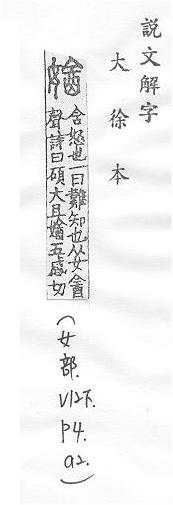 說文解字
大徐本
㜝
含怒也一曰難知也从女酓
聲詩曰碩大且㜝五感切
(女部. V12下. P4. a2.)